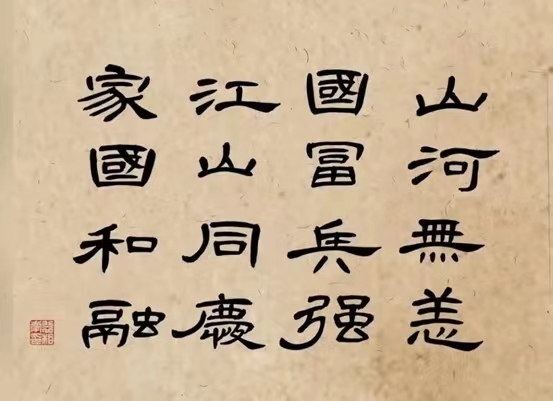 山河無恙
國富兵强
江山同慶
家國和融